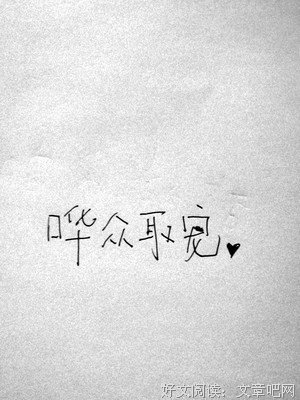 哗众取宠♥
好文阅读：文章吧网